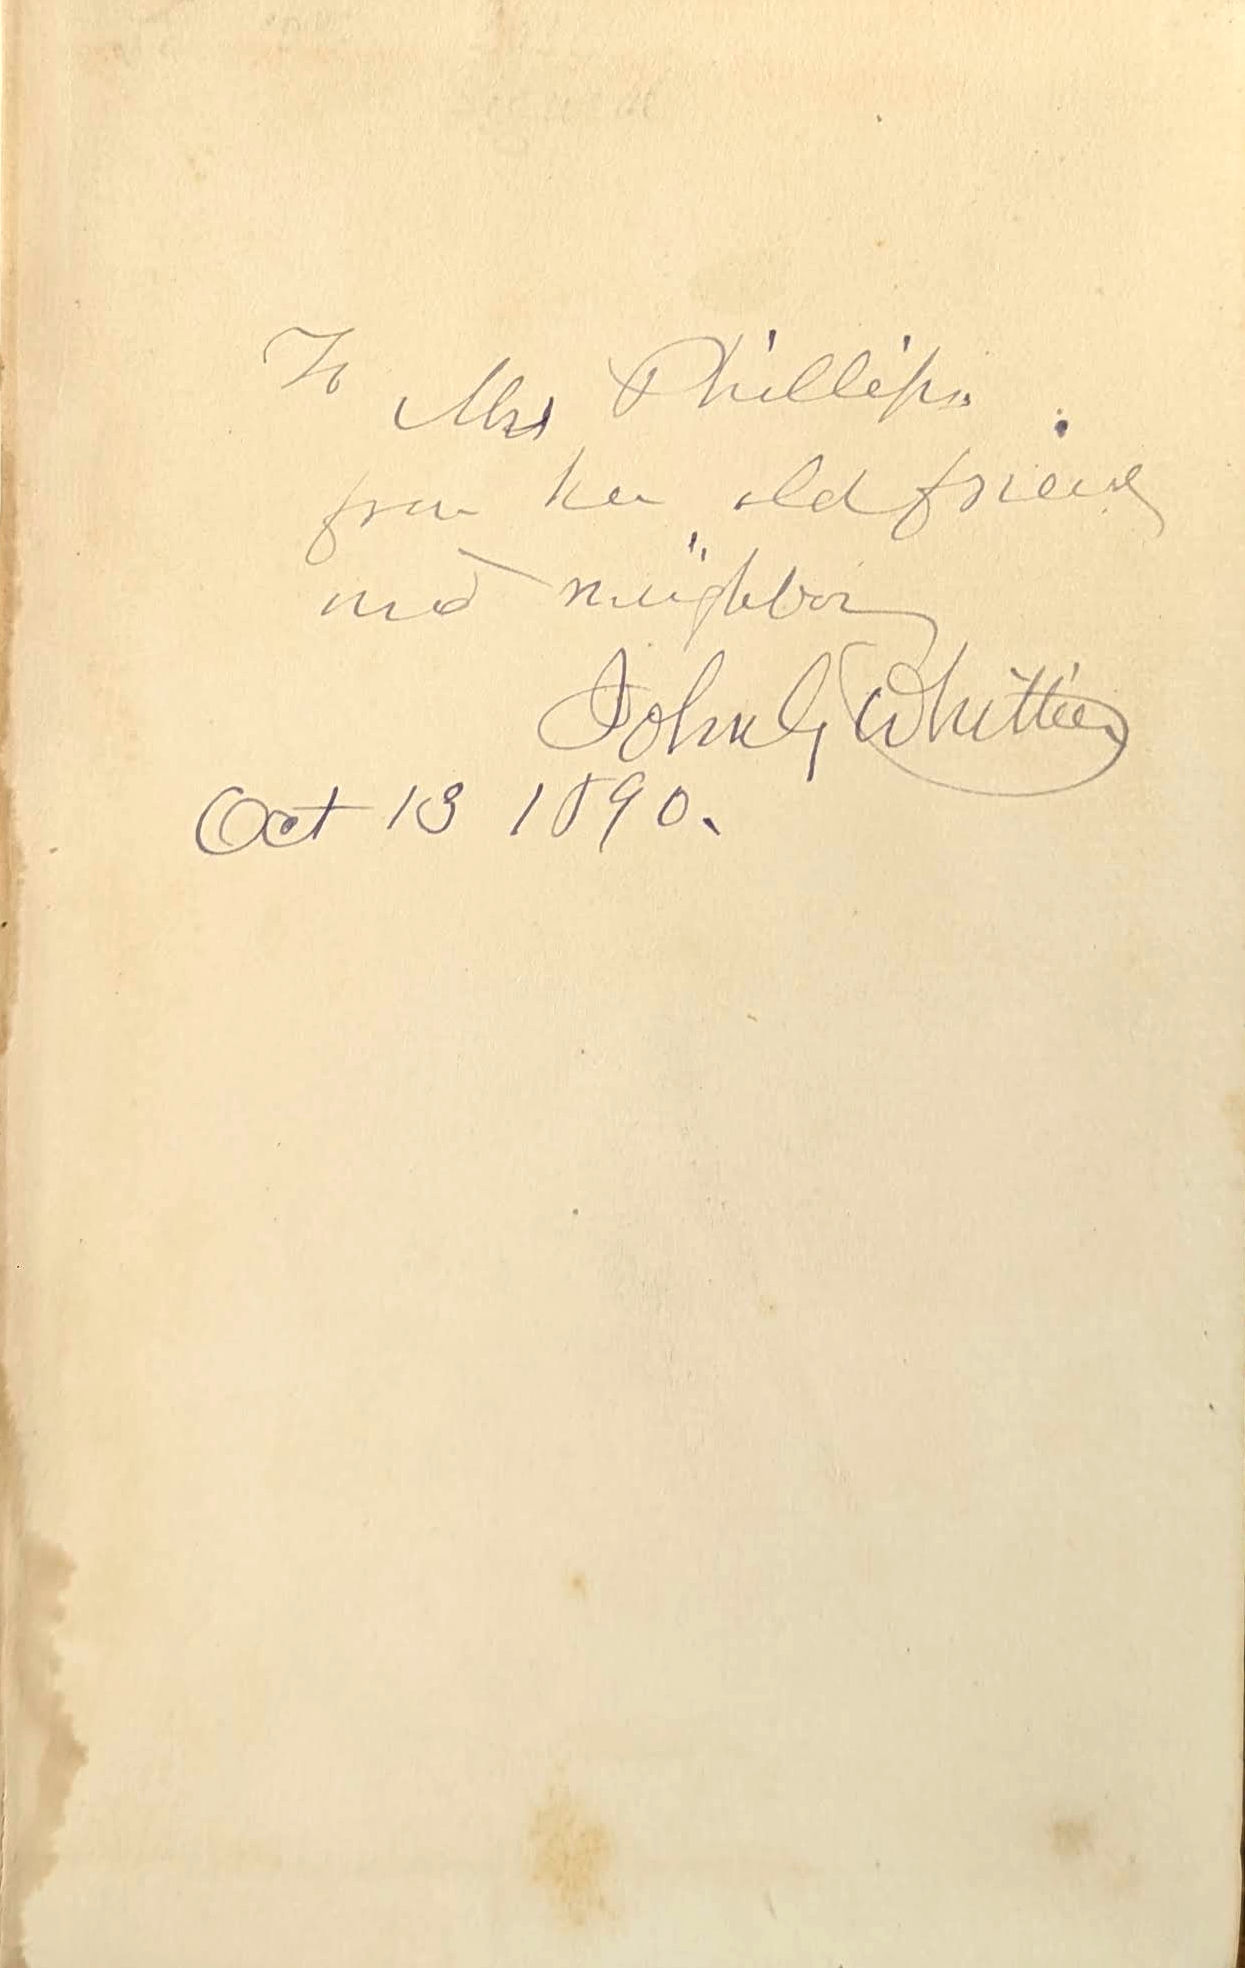 To
Mrs Phillips.
from her old friend
and neighbor
John G Whittier
Oct 13 1890.